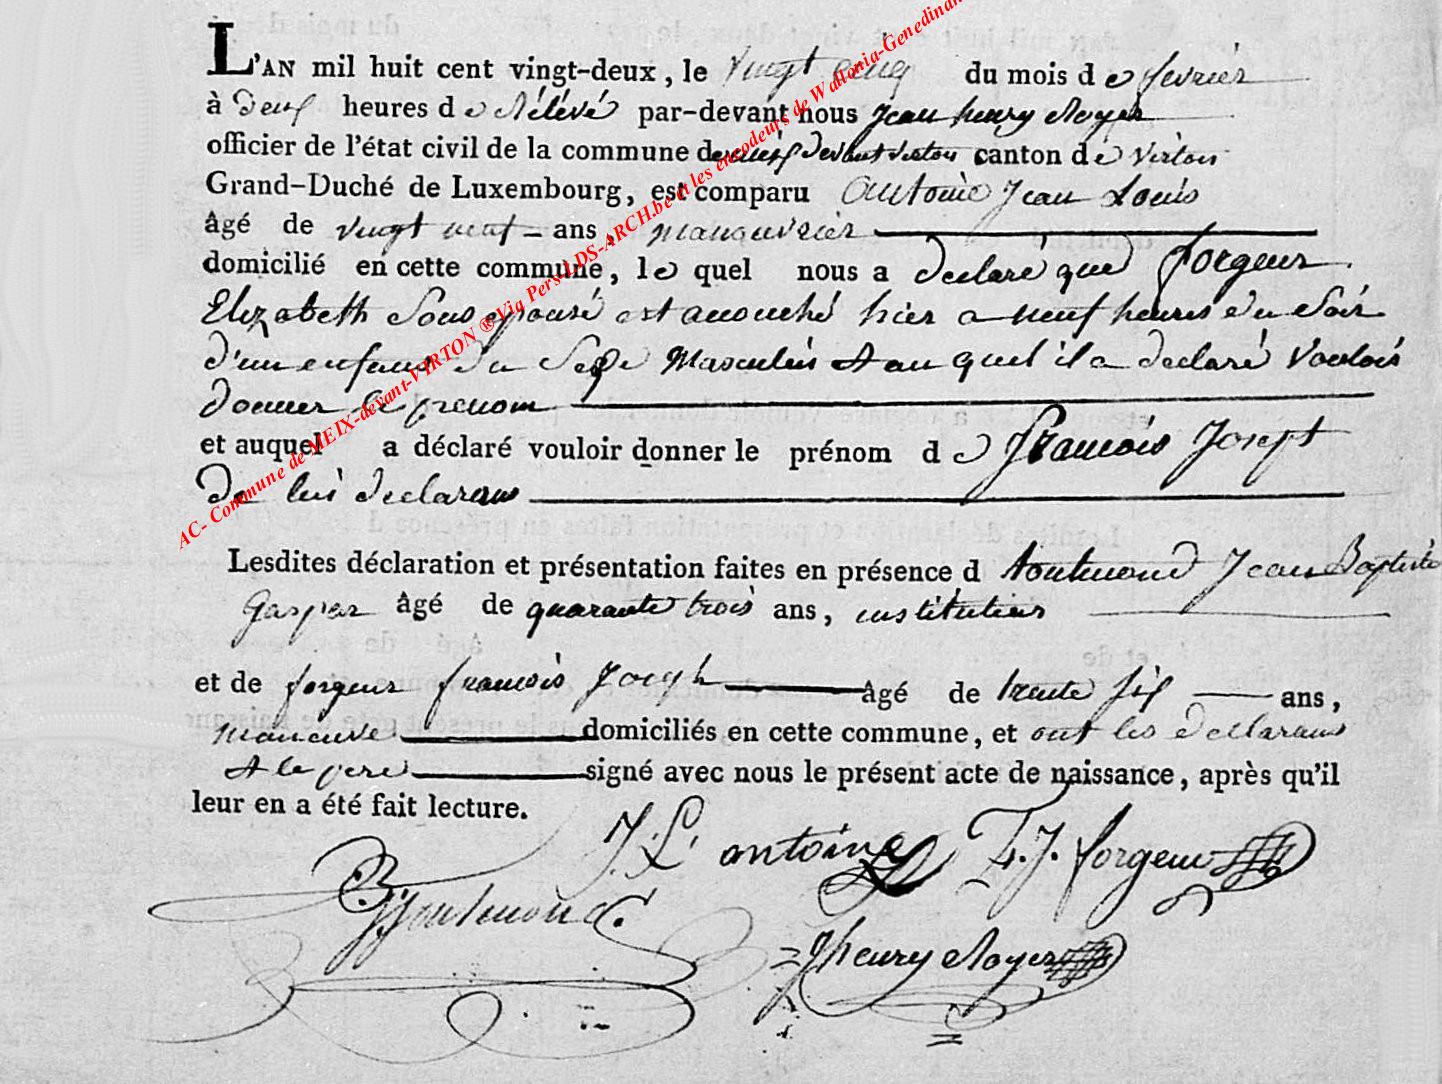 L'AN mil huit cent vingt-deux, le vingt cinq du mois d e fevrier
à deux heures d e Rélévé par-devant nous Jean henry Royer
officier de l'état civil de la commune de meix devant virton canton d e virton
Grand-Duché de Luxembourg, est comparu Antoine Jean Louis
âgé de vingt neuf ans, manouvrier
domicilié en cette commune, le quel nous a declaré que forgeur
Elizabeth Sous epouse est accouché hier a neuf heures du Soir
d'un enfant du Sexe Masculin et au quel il a declaré Vouloir
donner le prenom
et auquel a déclaré vouloir donner le prénom d e francois Josept
de lui declarans
Lesdites déclaration et présentation faites en présence d toutmond Jean Baptiste
Gaspar âgé de quarante trois ans, instituteur
et de forgeur francois Joseph âgé de trente six ans,
manouvre domiciliés en cette commune, et ont les declarans
et le pere signé avec nous le présent acte de naissance, après qu'il
leur en a été fait lecture.
J. L. antoine F. J. forgeur
J henry Royer
AC- Commune de MEIX-devant-VIRTON ® Via Pers LDS-ARCH.be et les encodeurs de Wallonia-Genedinan